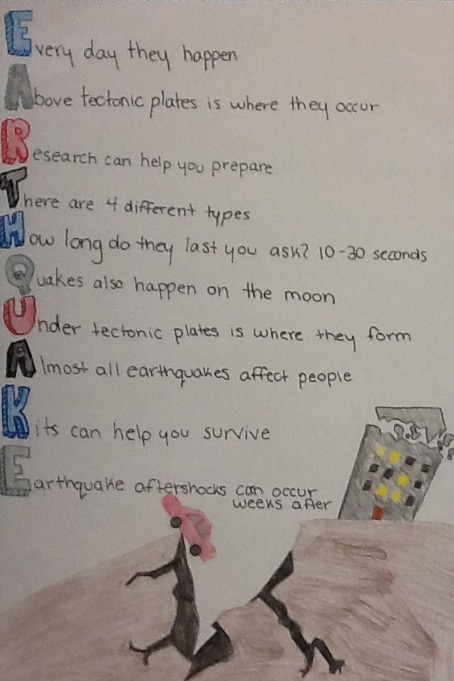 Every day they happen
Above tectonic plates is where they occur
Research can help you prepare
There are 4 different types
How long do they last you ask? 10-30 seconds
Quakes also happen on the moon
Under tectonic plates is where they form
Almost all earthquakes affect people
Kits can help you survive
Earthquake aftershocks can occur
weeks after